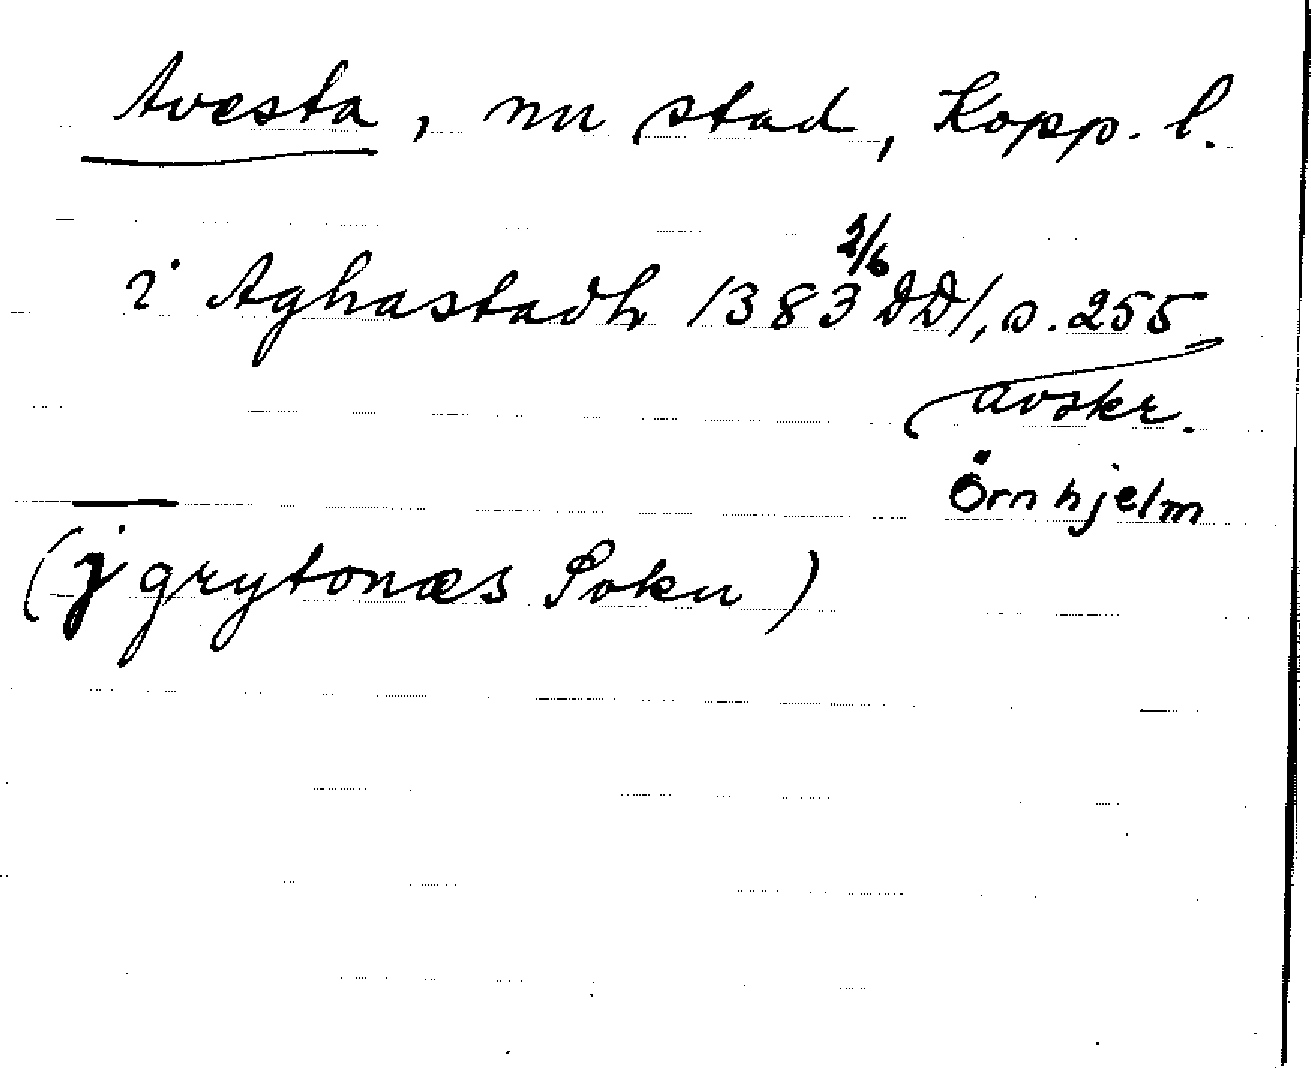 Avesta, nu stad, Kopp. l.
i Aghastadh 1383 2/6 DD1, s. 255
avskr.
Örnhjelm
(j grytonæs Sokn)